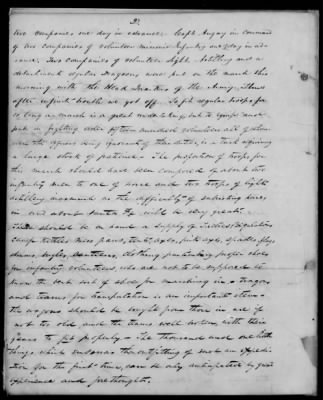 2.
two companies, one day in advance. Capt. Angney in command
of two companies of volunteer Missouri Infantry one day in ad-
vance. Two companies of volunteer Light Artillery and a
detachment regular Dragoons were put on the march this
morning with the Head Quarters of the Army. Thus
after infinite trouble we got off. To fit regular troops for
so long a march is a great undertaking, but to equip and
put in fighting order fifteen hundred volunteers all of them
even the officers being ignorant of their duties, is a task requiring
a large stock of patience. The proportion of troops for
this march should have been composed of about two
infantry men to one of horse and two troops of light
artillery mounted as the difficulty of subsisting horses
in and about Santa Fe will be very great.
There should be on hand a supply of Tactics Regulations
Camp kettles, mess pans, tents, axes, pick axes, spades, fifes
drums, bugles, canteens, clothing particularly proper shoes
for infantry volunteers, who are not to be supposed to
know the best sort of shoes for marching in. Wagons
and teams for transportation is an important item
the wagons should be bought from those in use if
not too old and the teams well broken with their
gears to fit properly. The thousand and one little
things, which embarrass the outfitting of such an expedi-
tion for the first time, can be only anticipated by great
experience and forethought.